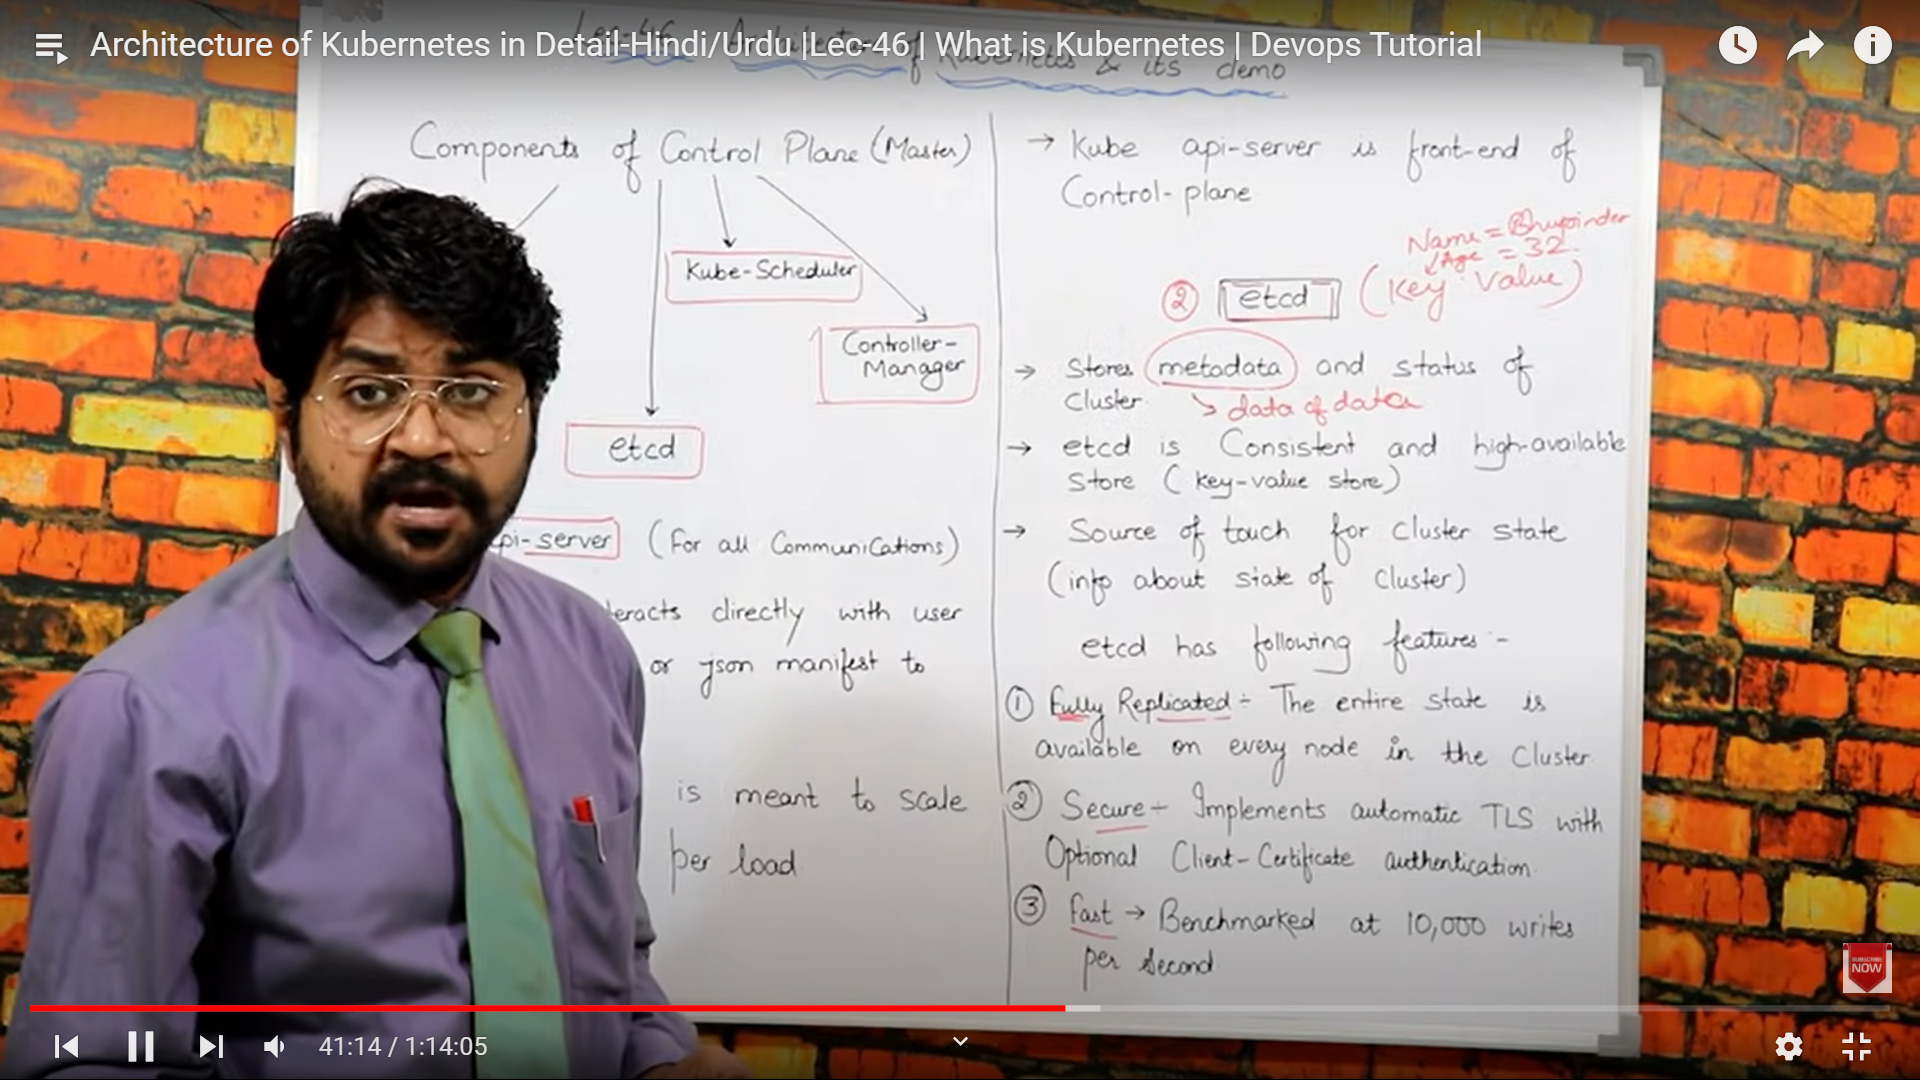 Architecture of Kubernetes in Detail-Hindi/Urdu |Lec-46 | What is Kubernetes | Devops Tutorial
Lec-46 Architecture of Kubernetes & its demo
Components of Control Plane (Master)
Kube-Scheduler
Controller-
Manager
etcd
pi-server (For all Communications)
teracts directly with user
or json manifest to
is meant to scale
per load
→ Kube api-server is front-end of
Control-plane
Name = Bhupinder
Age = 32
② etcd (Key Value)
→ Stores metadata and status of
Cluster
data of data
→ etcd is Consistent and high-available
Store (key-value store)
→ Source of touch for cluster state
(info about state of cluster)
etcd has following features :-
① Fully Replicated ÷ The entire state is
available on every node in the cluster
② Secure ÷ Implements automatic TLS with
Optional Client-Certificate authentication.
③ Fast → Benchmarked at 10,000 writes
per second
SUBSCRIBE
NOW
41:14 / 1:14:05